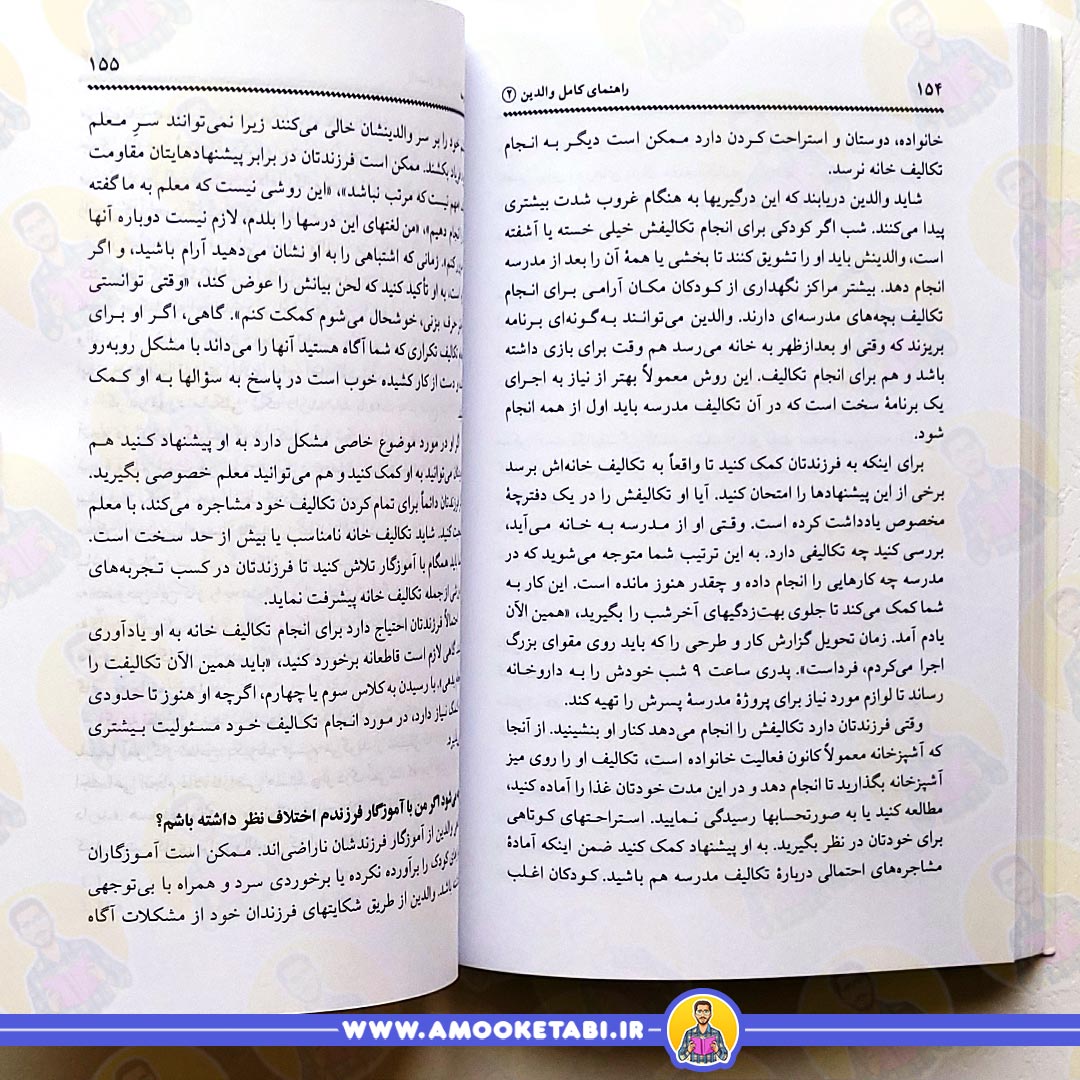 ۱۵۴
راهنمای کامل والدین ②
خانواده، دوستان و استراحت کردن دارد ممکن است دیگر به انجام
تکالیف خانه نرسد.
شاید والدین دریابند که این درگیریها به هنگام غروب شدت بیشتری
پیدا می‌کنند. شب اگر کودکی برای انجام تکالیفش خیلی خسته یا آشفته
است، والدینش باید او را تشویق کنند تا بخشی یا همهٔ آن را بعد از مدرسه
انجام دهد. بیشتر مراکز نگهداری از کودکان مکان آرامی برای انجام
تکالیف بچه‌های مدرسه‌ای دارند. والدین می‌توانند به‌گونه‌ای برنامه
بریزند که وقتی او بعدازظهر به خانه می‌رسد هم وقت برای بازی داشته
باشد و هم برای انجام تکالیف. این روش معمولاً بهتر از نیاز به اجرای
یک برنامهٔ سخت است که در آن تکالیف مدرسه باید اول از همه انجام
شود.
برای اینکه به فرزندتان کمک کنید تا واقعاً به تکالیف خانه‌اش برسد
برخی از این پیشنهادها را امتحان کنید. آیا او تکالیفش را در یک دفترچهٔ
مخصوص یادداشت کرده است. وقتی او از مدرسه به خانه می‌آید،
بررسی کنید چه تکالیفی دارد. به این ترتیب شما متوجه می‌شوید که در
مدرسه چه کارهایی را انجام داده و چقدر هنوز مانده است. این کار به
شما کمک می‌کند تا جلوی بهت‌زدگیهای آخرشب را بگیرید، «همین الآن
یادم آمد. زمان تحویل گزارش کار و طرحی را که باید روی مقوای بزرگ
اجرا می‌کردم، فرداست». پدری ساعت ۹ شب خودش را به داروخانه
رساند تا لوازم مورد نیاز برای پروژهٔ مدرسهٔ پسرش را تهیه کند.
وقتی فرزندتان دارد تکالیفش را انجام می‌دهد کنار او بنشینید. از آنجا
که آشپزخانه معمولاً کانون فعالیت خانواده است، تکالیف او را روی میز
آشپزخانه بگذارید تا انجام دهد و در این مدت خودتان غذا را آماده کنید،
مطالعه کنید یا به صورتحسابها رسیدگی نمایید. استراحتهای کوتاهی
برای خودتان در نظر بگیرید. به او پیشنهاد کمک کنید ضمن اینکه آمادهٔ
مشاجره‌های احتمالی دربارهٔ تکالیف مدرسه هم باشید. کودکان اغلب
۱۵۵
خود را بر سر والدینشان خالی می‌کنند زیرا نمی‌توانند سرِ معلم
بکشند. ممکن است فرزندتان در برابر پیشنهادهایتان مقاومت
نیست که مرتب نباشد»، «این روشی نیست که معلم به ما گفته
انجام دهیم»، «من لغتهای این درسها را بلدم، لازم نیست دوباره آنها
کنم». زمانی که اشتباهی را به او نشان می‌دهید آرام باشید، و اگر
به او تأکید کنید که لحن بیانش را عوض کند، «وقتی توانستی
حرف بزنی، خوشحال می‌شوم کمکت کنم». گاهی، اگر او برای
تکالیف تکراری که شما آگاه هستید آنها را می‌داند با مشکل روبه‌رو
دست از کار کشیده خوب است در پاسخ به سؤالها به او کمک
او در مورد موضوع خاصی مشکل دارد به او پیشنهاد کنید هم
می‌توانید به او کمک کنید و هم می‌توانید معلم خصوصی بگیرید.
دائماً برای تمام کردن تکالیف خود مشاجره می‌کند، با معلم
کنید. شاید تکالیف خانه نامناسب یا بیش از حد سخت است.
همگام با آموزگار تلاش کنید تا فرزندتان در کسب تجربه‌های
از جمله تکالیف خانه پیشرفت نماید.
فرزندتان احتیاج دارد برای انجام تکالیف خانه به او یادآوری
گاهی لازم است قاطعانه برخورد کنید، «باید همین الآن تکالیفت را
با رسیدن به کلاس سوم یا چهارم، اگرچه او هنوز تا حدودی
نیاز دارد، در مورد انجام تکالیف خود مسئولیت بیشتری
اگر من با آموزگار فرزندم اختلاف نظر داشته باشم؟
والدین از آموزگار فرزندشان ناراضی‌اند. ممکن است آموزگاران
کودک را برآورده نکرده یا برخوردی سرد و همراه با بی‌توجهی
باشد. والدین از طریق شکایتهای فرزندان خود از مشکلات آگاه
WWW.AMOOKETABI.IR